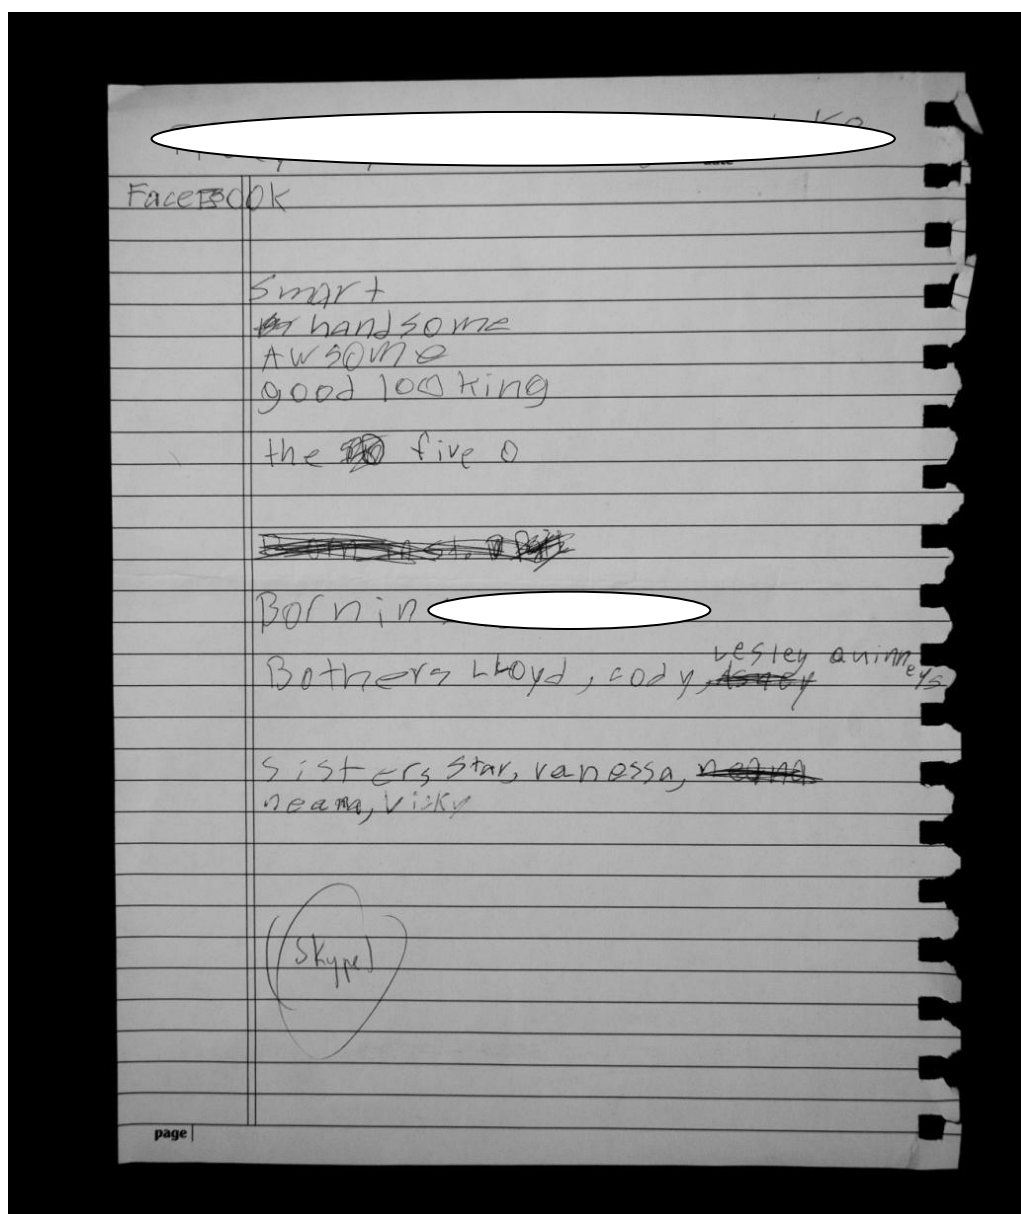 Ke
FaceBook
Smart
handsome
Awsome
good looking
the five O
Born in
Bothers LLoyd, cody, Lesley Quinneys
sisters star, vanessa,
neama, Vicky
Skype
page